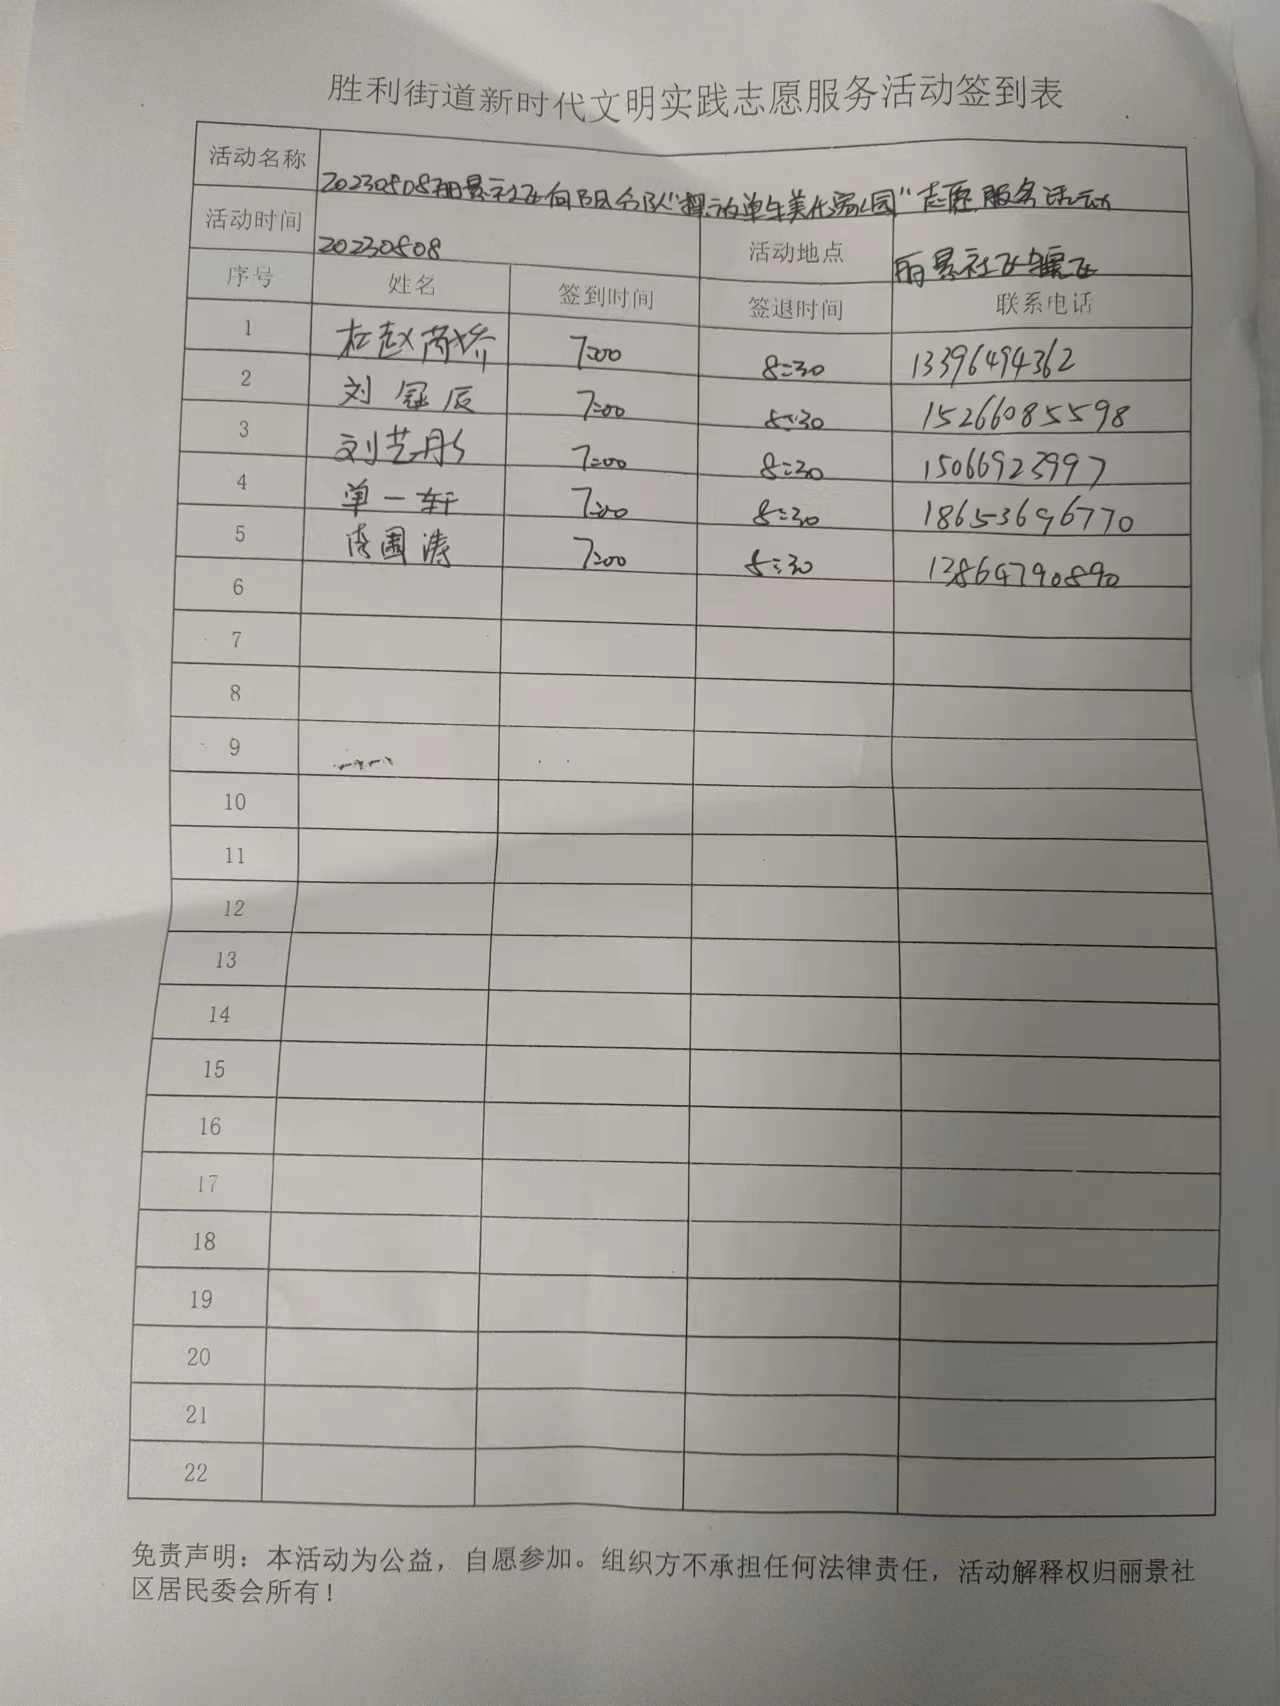 胜利街道新时代文明实践志愿服务活动签到表
活动名称 20230508丽景社区向阳分队"摆放单车美化家园"志愿服务活动
活动时间 20230508 活动地点 丽景社区辖区
序号 姓名 签到时间 签退时间 联系电话
1 杜赵芮娇 7:00 8:30 13396494362
2 刘冠辰 7:00 8:30 15266085598
3 刘芝彤 7:00 8:30 15066923997
4 单一轩 7:00 8:30 18653696770
5 国涛 7:00 8:30 12864790890
6
7
8
9
10
11
12
13
14
15
16
17
18
19
20
21
22
免责声明：本活动为公益，自愿参加。组织方不承担任何法律责任，活动解释权归丽景社
区居民委会所有！